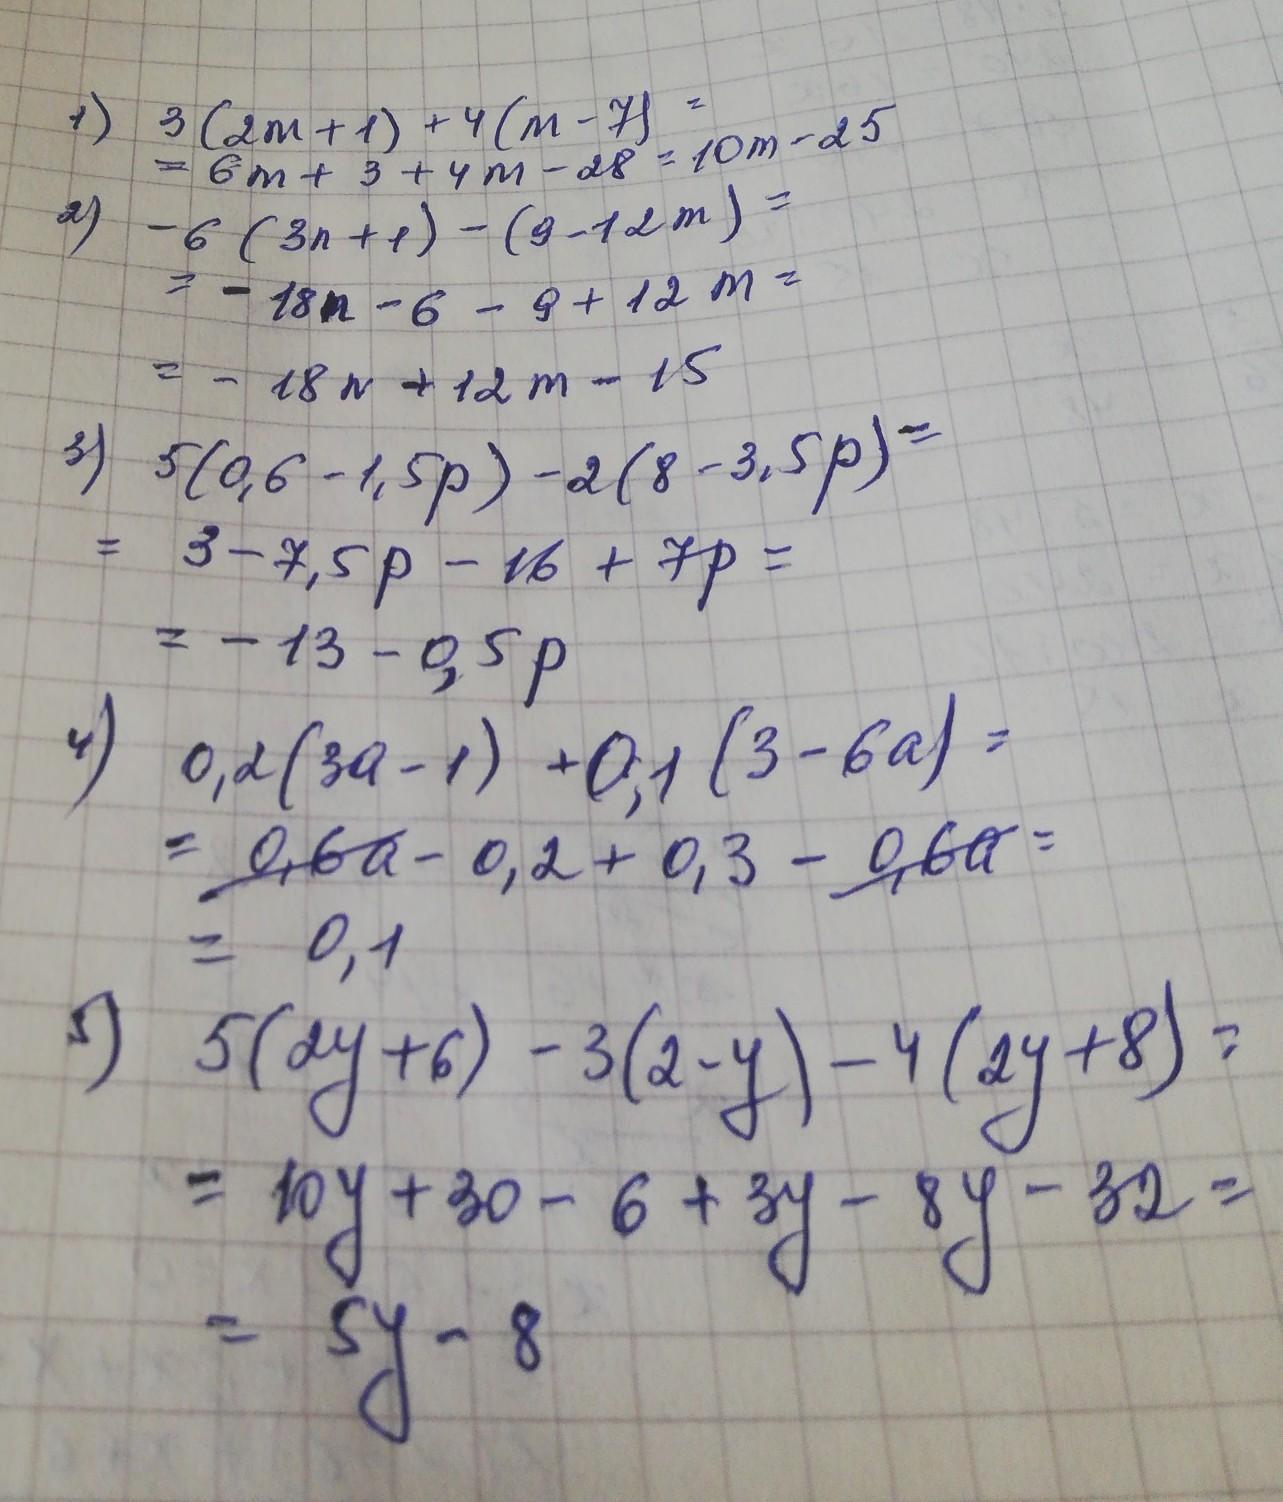 1) 3(2m+1)+4(m-7) =
= 6m+3+4m-28=10m-25
2) -6(3n+1)-(9-12m)=
= -18n-6-9+12m=
= -18n+12m-15
3) 5(0,6-1,5p)-2(8-3,5p)=
= 3-7,5p-16+7p=
= -13-0,5p
4) 0,2(3a-1)+0,1(3-6a)=
= 0,6a-0,2+0,3-0,6a=
= 0,1
5) 5(2y+6)-3(2-y)-4(2y+8)=
= 10y+30-6+3y-8y-32=
= 5y-8